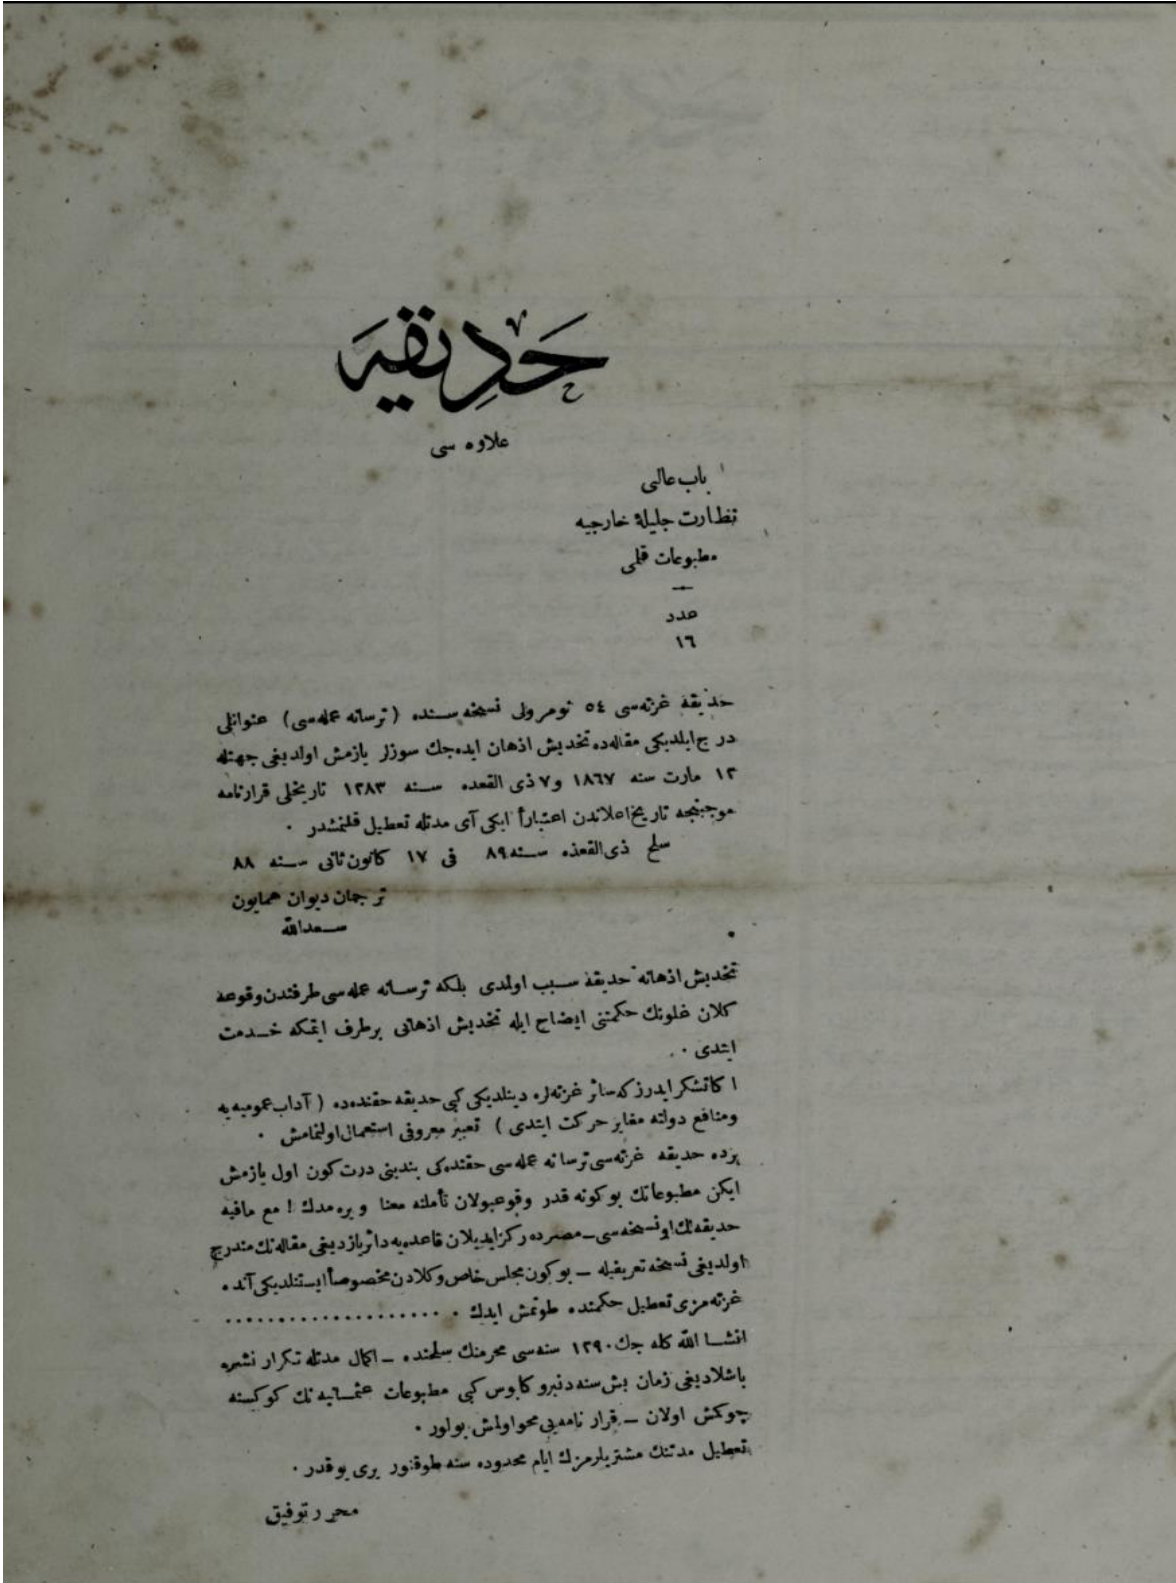 حديقه
علاوه سی
باب عالی
نظارت جليلهٔ خارجيه
مطبوعات قلمی
عدد
١٦
حديقه غزته‌سی ٥٤ نومرولی نسخه سنده (ترسانه عمله‌سی) عنوانلی
درج ايلديكی مقاله‌ده تخديش اذهان ايده‌جك سوزلر يازمش اولديغی جهتله
١٢ مارت سنه ١٨٦٧ و ٧ ذی القعده سنه ١٢٨٣ تاريخلی قرارنامه
موجبنجه تاريخ اعلاندن اعتباراً ايكی آی مدتله تعطيل قلنمشدر ٠
سلخ ذی القعده سنه ٨٩ فی ١٧ كانون ثانی سنه ٨٨
ترجمان ديوان همايون
سعدالله
تخديش اذهانه حديقه سبب اولمدی بلكه ترسانه عمله‌سی طرفندن وقوعه
كلان غلونك حكمتنی ايضاح ايله تخديش اذهانی برطرف ايتمكه خدمت
ايتدی ٠
اكا تشكر ايدرز كه سائر غزته‌لره دينلديكی كبی حديقه حقنده‌ده (آداب عموميه‌يه
ومنافع دولته مغاير حركت ايتدی) تعبير معروفی استعمال اولنمامش ٠
بزده حديقه غزته‌سی ترسانه عمله‌سی حقنده‌كی بندينی درت كون اول يازمش
ايكن مطبوعاتك بوكونه قدر وقوعبولان تأملنه معنا ويره‌مدك ! مع مافيه
حديقه‌نك او نسخه‌سی ــ مصرده ركز ايديلان قاعده‌يه دائر يازديغی مقاله‌نك مندرج
اولديغی نسخه تعريفيله ــ بوكون مجلس خاص وكلادن مخصوصاً ايستنلديكی آنده
غزته‌مزی تعطيل حكمنده طوتمش ايدك ٠ ....................
انشا الله كله جك ١٢٩٠ سنه‌سی محرمنك سلخنده ــ اكمال مدتله تكرار نشره
باشلاديغی زمان بش سنه‌دنبرو كابوس كبی مطبوعات عثمانيه‌نك كوكسنه
چوكمش اولان ــ قرار نامه‌يی محو اولمش بولور ٠
تعطيل مدتنك مشتريلرمزك ايام محدوده سنه طوقنور يری يوقدر ٠
محرر توفيق